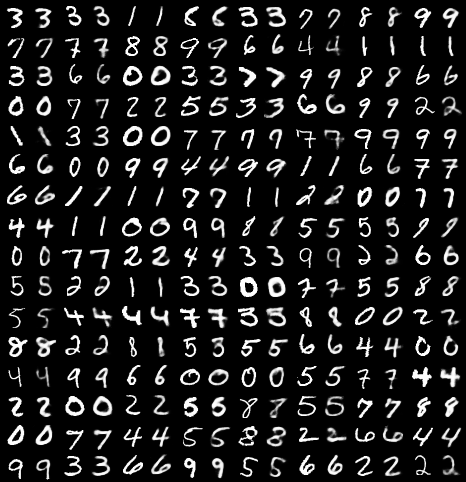 3 3 3 3 1 1 8 8 3 3 7 7 8 8 9 9
7 7 7 7 8 8 9 9 6 6 4 4 1 1 1 1
3 3 6 6 0 0 3 3 7 7 9 9 8 8 6 6
0 0 7 7 2 2 5 5 3 3 6 6 9 9 2 2
1 1 3 3 0 0 7 7 7 7 7 7 9 9 9 9
6 6 0 0 9 9 4 4 9 9 1 1 6 6 7 7
6 6 1 1 1 1 7 7 1 1 2 2 0 0 7 7
4 4 1 1 0 0 9 9 8 8 5 5 5 5 9 9
0 0 7 7 2 2 4 4 3 3 9 9 2 2 6 6
5 5 2 2 1 1 3 3 0 0 7 7 5 5 8 8
5 5 4 4 4 4 7 7 3 3 8 8 0 0 2 2
8 8 2 2 8 8 5 3 5 5 6 6 4 4 0 0
4 4 9 9 6 6 0 0 0 0 5 5 7 7 4 4
2 2 0 0 2 2 5 5 8 8 5 5 7 7 8 8
0 0 7 7 4 4 5 5 8 8 2 2 6 6 4 4
9 9 3 3 6 6 9 9 5 5 6 6 2 2 2 2